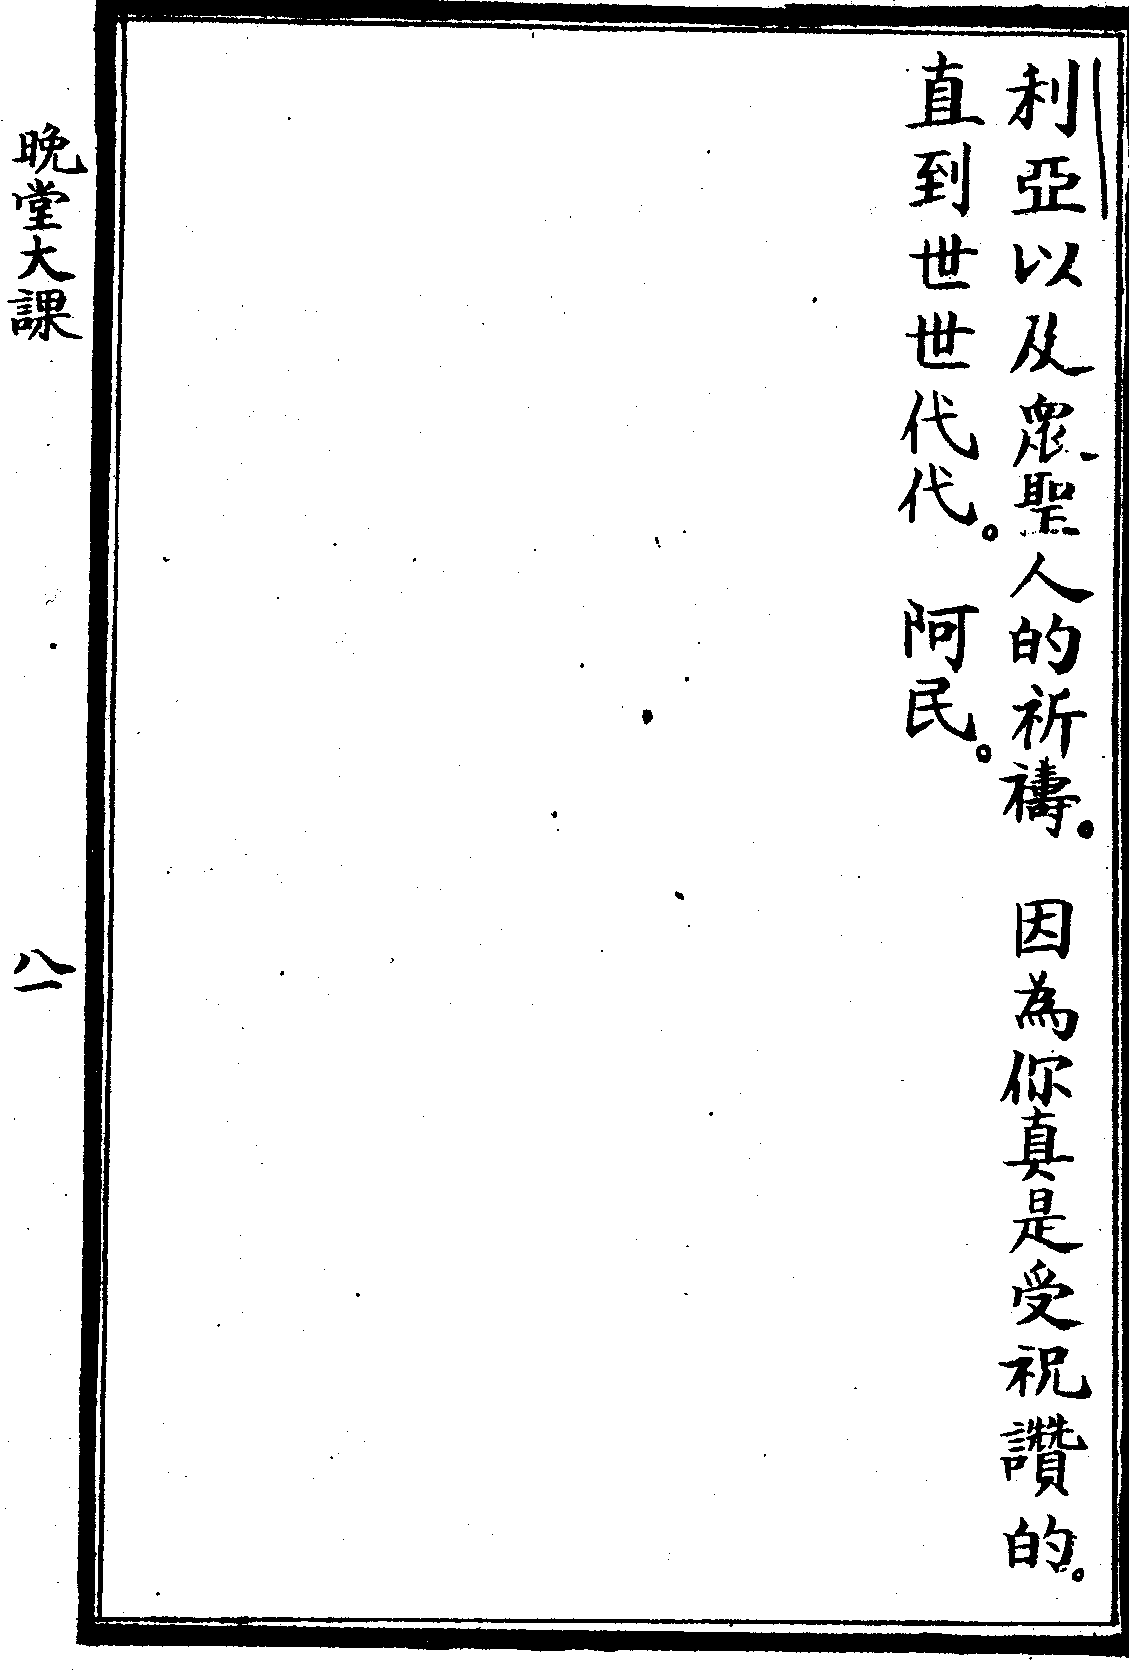 利亞以及眾聖人的祈禱。 因為你真是受祝讚的。
直到世世代代。 阿民。
晚堂大課
八一